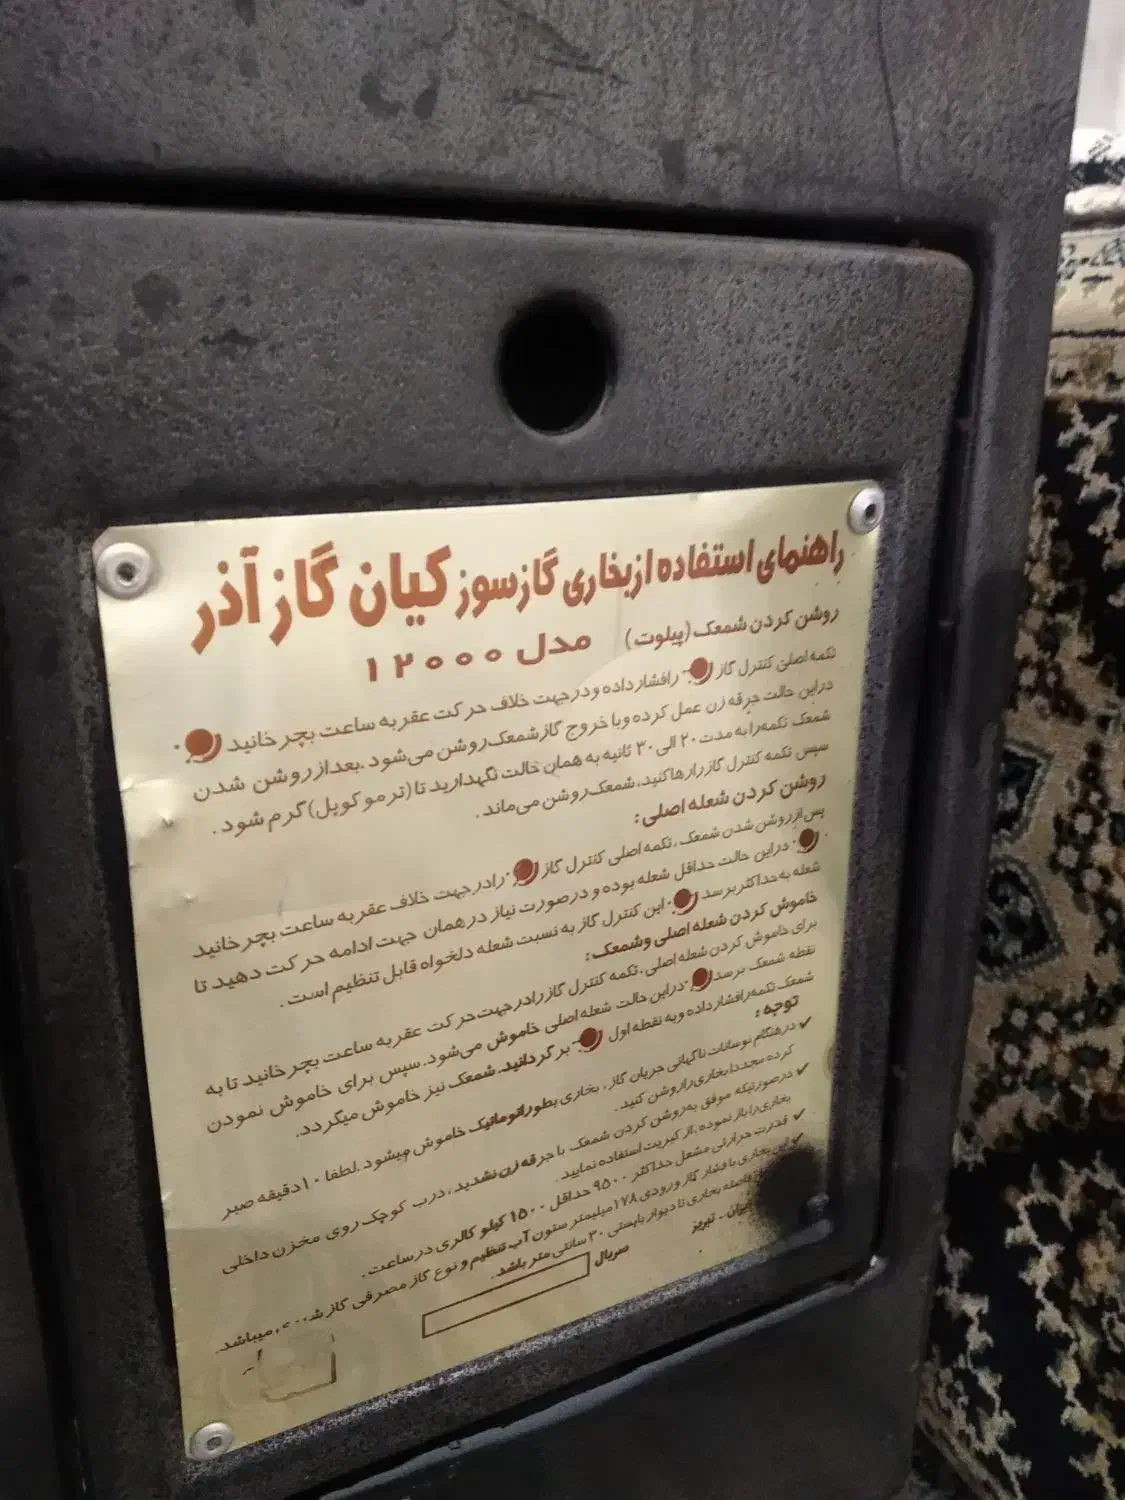 راهنمای استفاده از بخاری گازسوز کیان گاز آذر
روشن کردن شمعک (پیلوت) مدل ۱۲۰۰۰
تکمه اصلی کنترل گاز را فشار داده و در جهت خلاف حرکت عقربه ساعت بچرخانید
دراین حالت جرقه زن عمل کرده و با خروج گاز شمعک روشن می‌شود. بعد از روشن شدن
شمعک تکمه را به مدت ۲۰ الی ۳۰ ثانیه به همان حالت نگهدارید تا (ترموکوپل) گرم شود.
سپس تکمه کنترل گاز را رها کنید، شمعک روشن می‌ماند.
روشن کردن شعله اصلی:
پس از روشن شدن شمعک، تکمه اصلی کنترل گاز را در جهت خلاف عقربه ساعت بچرخانید
دراین حالت حداقل شعله بوده و در صورت نیاز در همان جهت ادامه حرکت دهید تا
شعله به حداکثر برسد این کنترل گاز به نسبت شعله دلخواه قابل تنظیم است.
خاموش کردن شعله اصلی وشمعک:
برای خاموش کردن شعله اصلی، تکمه کنترل گاز را در جهت حرکت عقربه ساعت بچرخانید تا به
نقطه شمعک برسد دراین حالت شعله اصلی خاموش می‌شود. سپس برای خاموش نمودن
شمعک تکمه را فشار داده و به نقطه اول برگردانید. شمعک نیز خاموش میگردد.
توجه:
✓ در هنگام نوسانات ناگهانی جریان گاز، بخاری بطور اتوماتیک خاموش میشود. لطفا ۱۰ دقیقه صبر
کرده مجددا بخاری را روشن کنید.
✓ در صورتیکه موفق به روشن کردن شمعک با جرقه زن نشدید، درب کوچک روی مخزن داخلی
بخاری را باز نموده، از کبریت استفاده نمایید.
✓ قدرت حرارتی مشعل حداکثر ۹۵۰۰ حداقل ۱۵۰۰ کیلو کالری در ساعت.
✓ این بخاری با فشار گاز ورودی ۱۷۸ میلیمتر ستون آب تنظیم و نوع گاز مصرفی گاز میباشد.
فاصله بخاری تا دیوار بایستی ۳۰ سانتی متر باشد.
ایران - تبریز
سریال